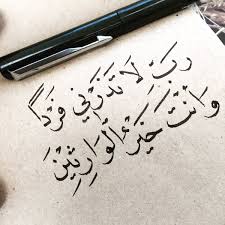 رَبِّ لَا تَذَرْنِي فَرْدًا
وَأَنْتَ خَيْرُ الْوَارِثِينَ